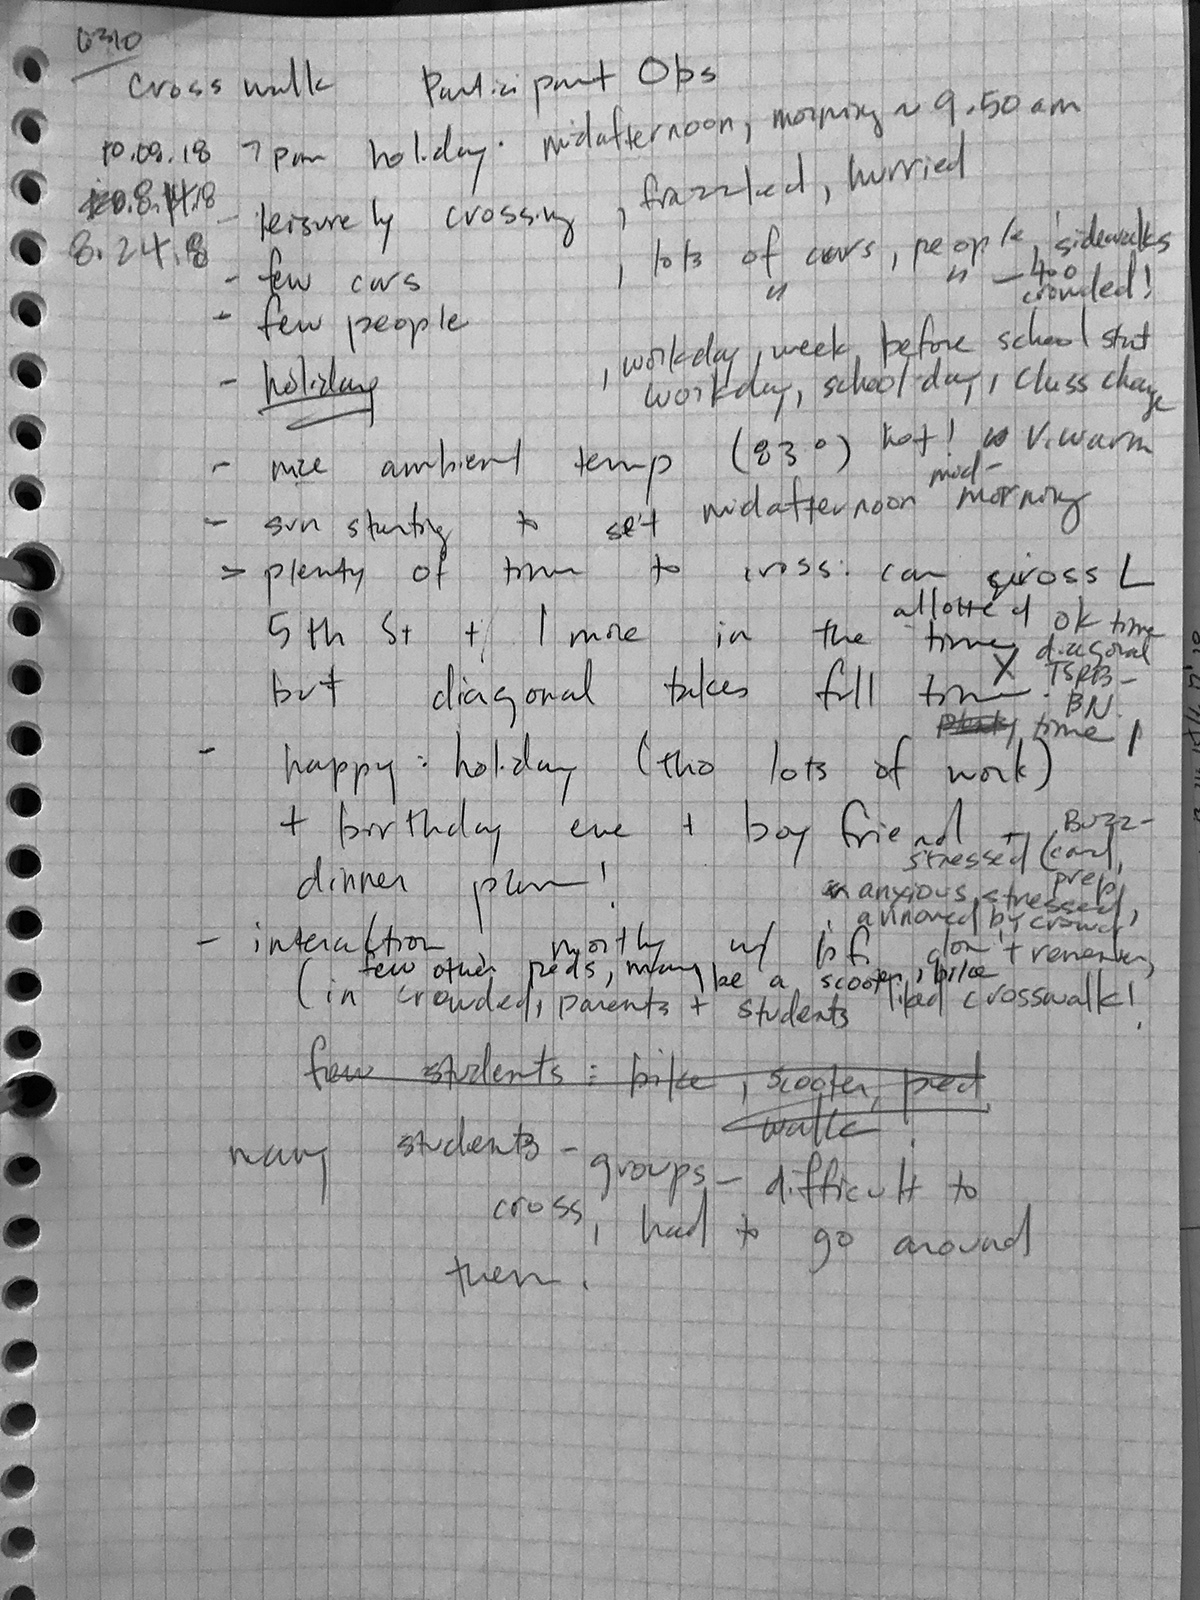 6310
Crosswalk Participant Obs
10.08.18 7pm holiday. midafternoon, morning ~ 9.50 am
8.14.18
8.24.18
- leisurely crossing, frazzled, hurried
- few cars, lots of cars, people, sidewalks
" " - too crowded!
- few people
- holiday, workday, week before school start
workday, school day, class change
- nice ambient temp (83°) hot! V. warm
- sun starting to set midafternoon mid-morning
> plenty of time to cross: can cross L
5th St + 1 more in the allotted time, ok time
but diagonal takes full time. X diagonal TSRB - BN.
time!
- happy: holiday (tho lots of work)
+ birthday eve + boyfriend +
dinner plan!
stressed (Buzz-card, prep,
anxious, stressed,
annoyed by crowd
- interaction mostly w/ bf. don't remember,
(few other peds, maybe a scooter, bike
(in crowded, parents + students liked crosswalk!
few students: bike, scooter, ped
walk
many students - groups - difficult to
cross, had to go around
them.